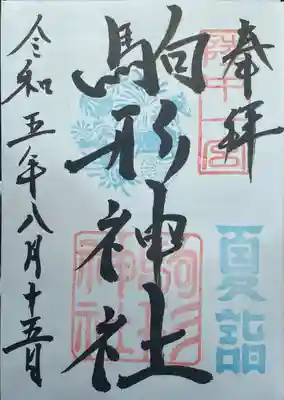 奉拝
陸中一宮
駒形神社
駒形神社
夏詣
令和五年八月十五日